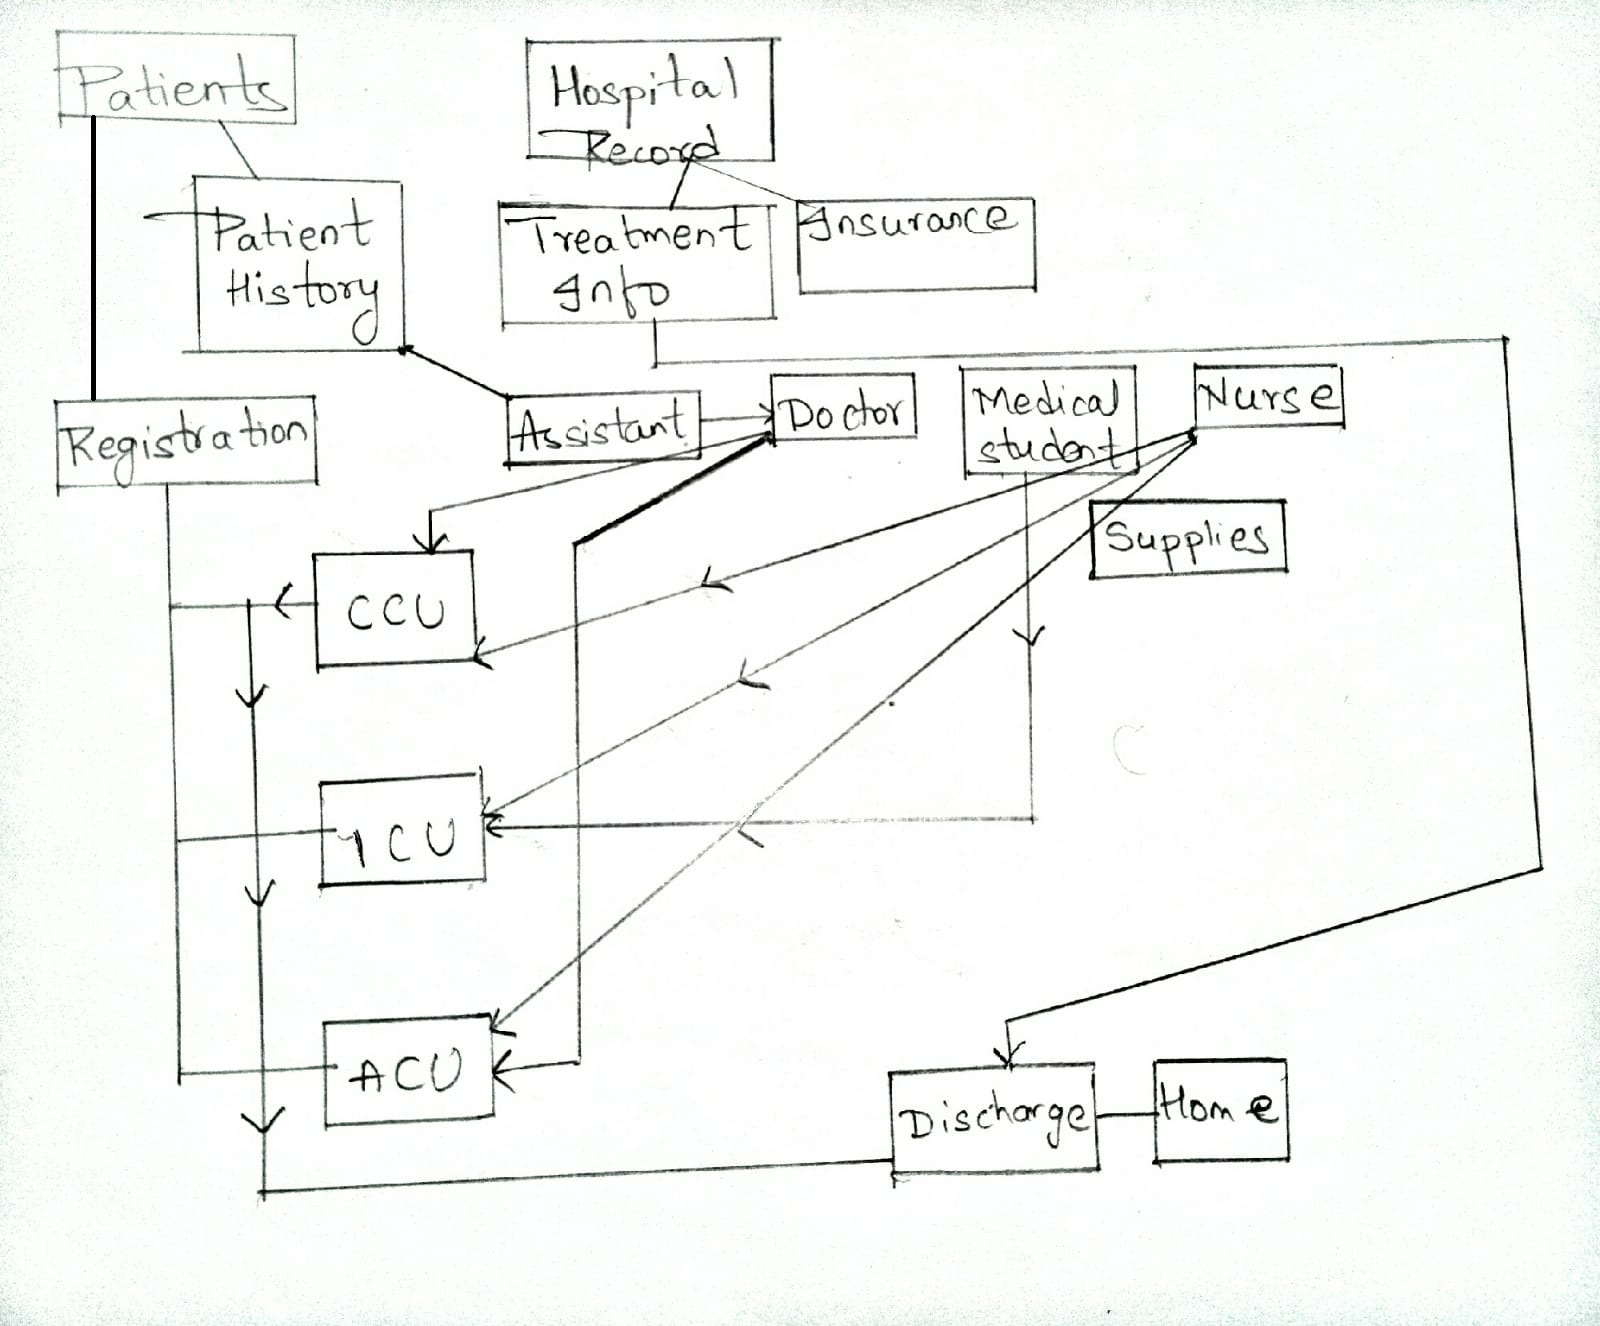 Patients
Hospital
Record
Patient
History
Treatment
Info
Insurance
Registration
Assistant
Doctor
Medical
student
Nurse
Supplies
CCU
ICU
ACU
Discharge
Home